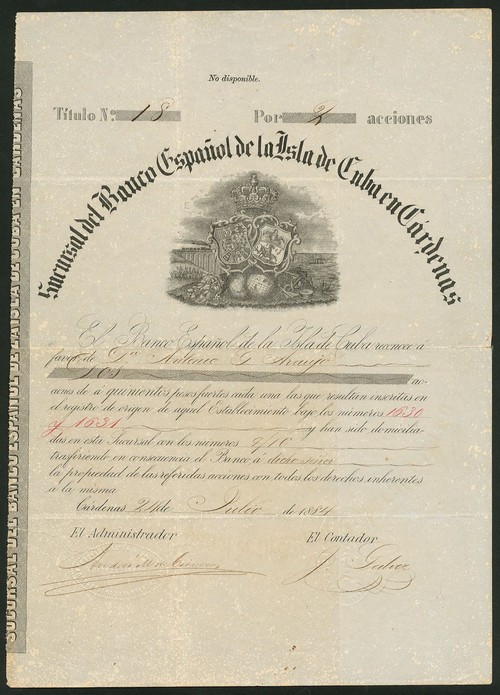 No disponible.
Título Nº 18 Por 2 acciones
Sucursal del Banco Español de la Isla de Cuba en Cárdenas
El Banco Español de la Isla de Cuba reconoce á
favor de Dn Antonio G. Araujo
Dos ac-
ciones de á quinientos pesos fuertes cada una las que resultan inscritas en
el registro de origen de aquel Establecimiento bajo los números 1630
y 1631 y han sido domicilia-
das en esta Sucursal con los números
trasfiriendo en consecuencia el Banco á dicho señor
la propiedad de las referidas acciones con todos los derechos inherentes
á la misma
Cárdenas 24 de Julio de 1884
El Administrador El Contador
J.
SUCURSAL DEL BANCO ESPAÑOL DE LA ISLA DE CUBA EN CÁRDENAS